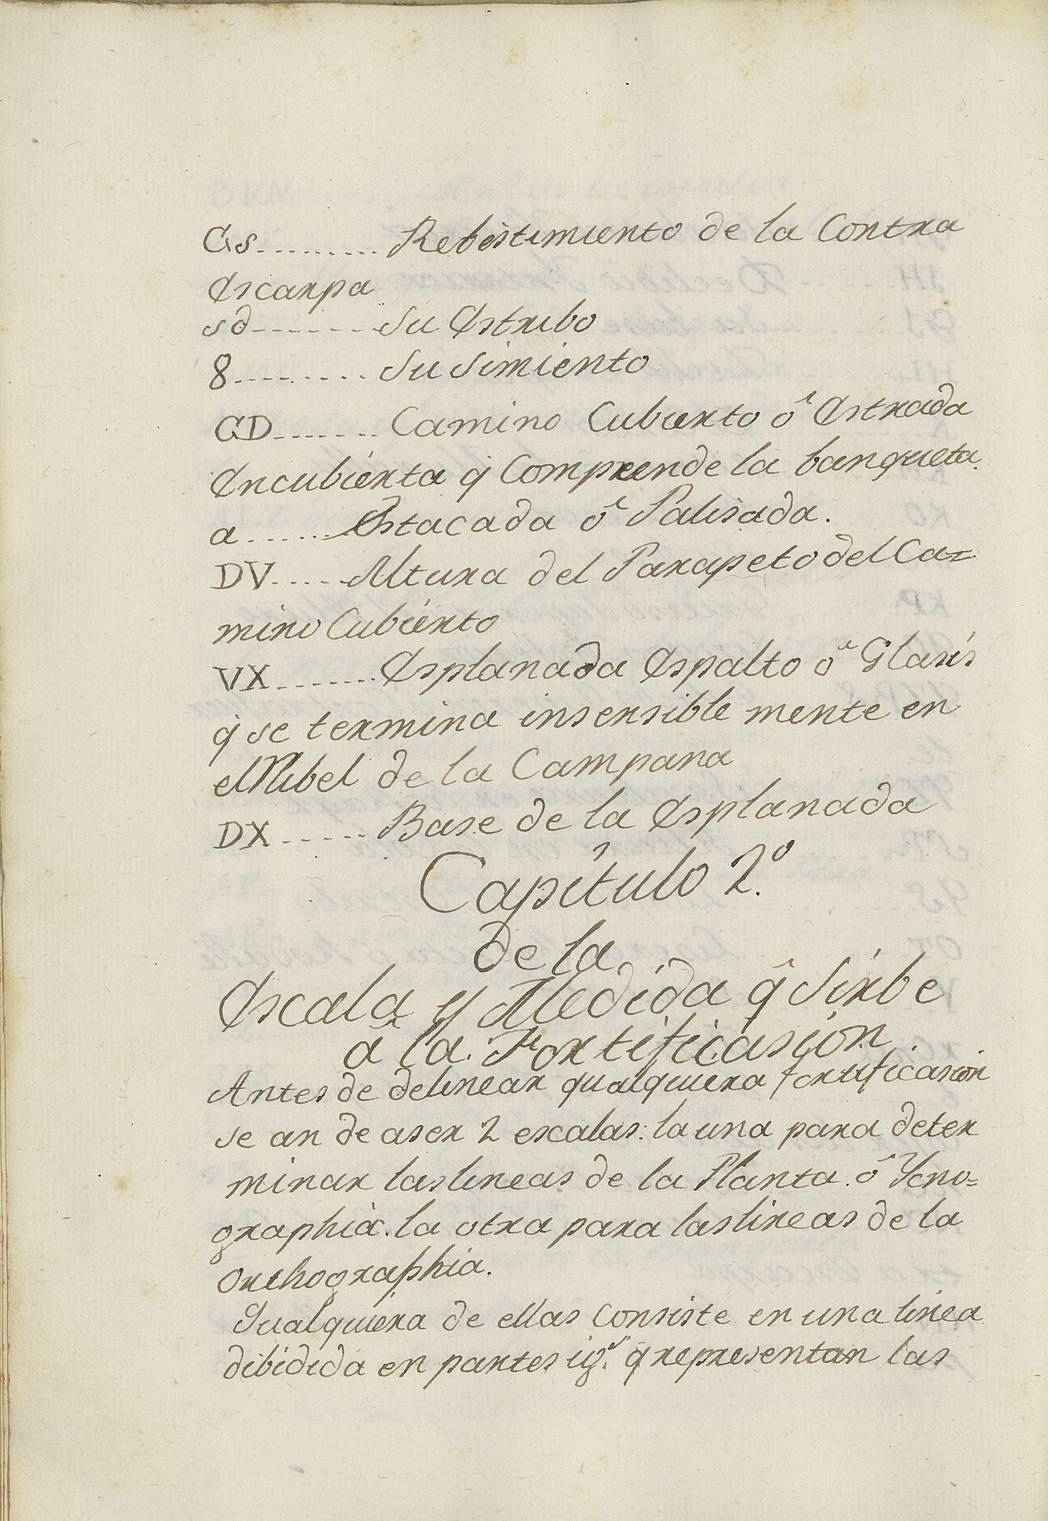 Gs......... Rebestimiento de la Contra
Escarpa
sd------- su Estribo
8......... su simiento
CD....... Camino Cubierto ó Estrada
Encubierta q̃ Comprende la banqueta.
a...... Estacada ó Palisada.
DV..... Altura del Parapeto del Ca=
mino Cubierto
VX....... Esplanada Espalto ó Glasis
q̃ se termina insensible mente en
el Nibel de la Campana
DX...... Base de la Esplanada
Capítulo 2.º
de la
Escala y Medida q̃ Sirbe
â la Fortificasión.
Antes de delinear qualquiera fortificasion
se an de aser 2 escalas: la una para deter
minar las lineas de la Planta. ó Ycno=
graphia. la otra para las lineas de la
Orthographia.
Qualquiera de ellas Consiste en una linea
dibidida en partes ig.s q̃ representan las